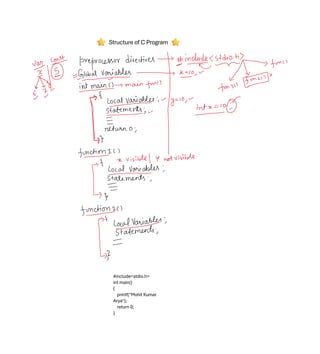 Structure of C Program
preprocessor directives → #include<stdio.h>
var const
Global Variables → x=10;
x 5 func1
int main() → main func1
func1 func2
{
Local Variables; y=20;
int x=10;
statements;
return 0;
}
function1()
x visible | y not visible
{
Local Variables;
Statements;
}
function2()
{
Local Variables;
Statements;
}
#include<stdio.h>
int main()
{
printf("Mohit Kumar
Arya");
return 0;
}